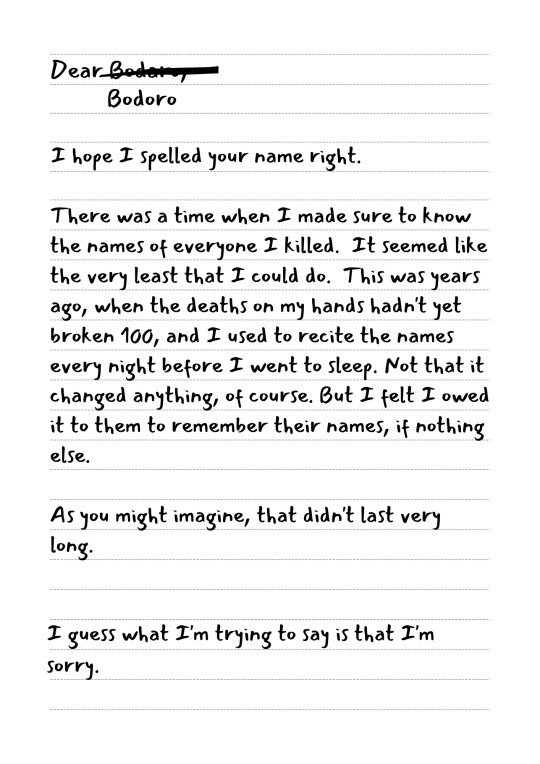 Dear Bodaro,
Bodoro
I hope I spelled your name right.
There was a time when I made sure to know
the names of everyone I killed. It seemed like
the very least that I could do. This was years
ago, when the deaths on my hands hadn't yet
broken 100, and I used to recite the names
every night before I went to sleep. Not that it
changed anything, of course. But I felt I owed
it to them to remember their names, if nothing
else.
As you might imagine, that didn't last very
long.
I guess what I'm trying to say is that I'm
sorry.